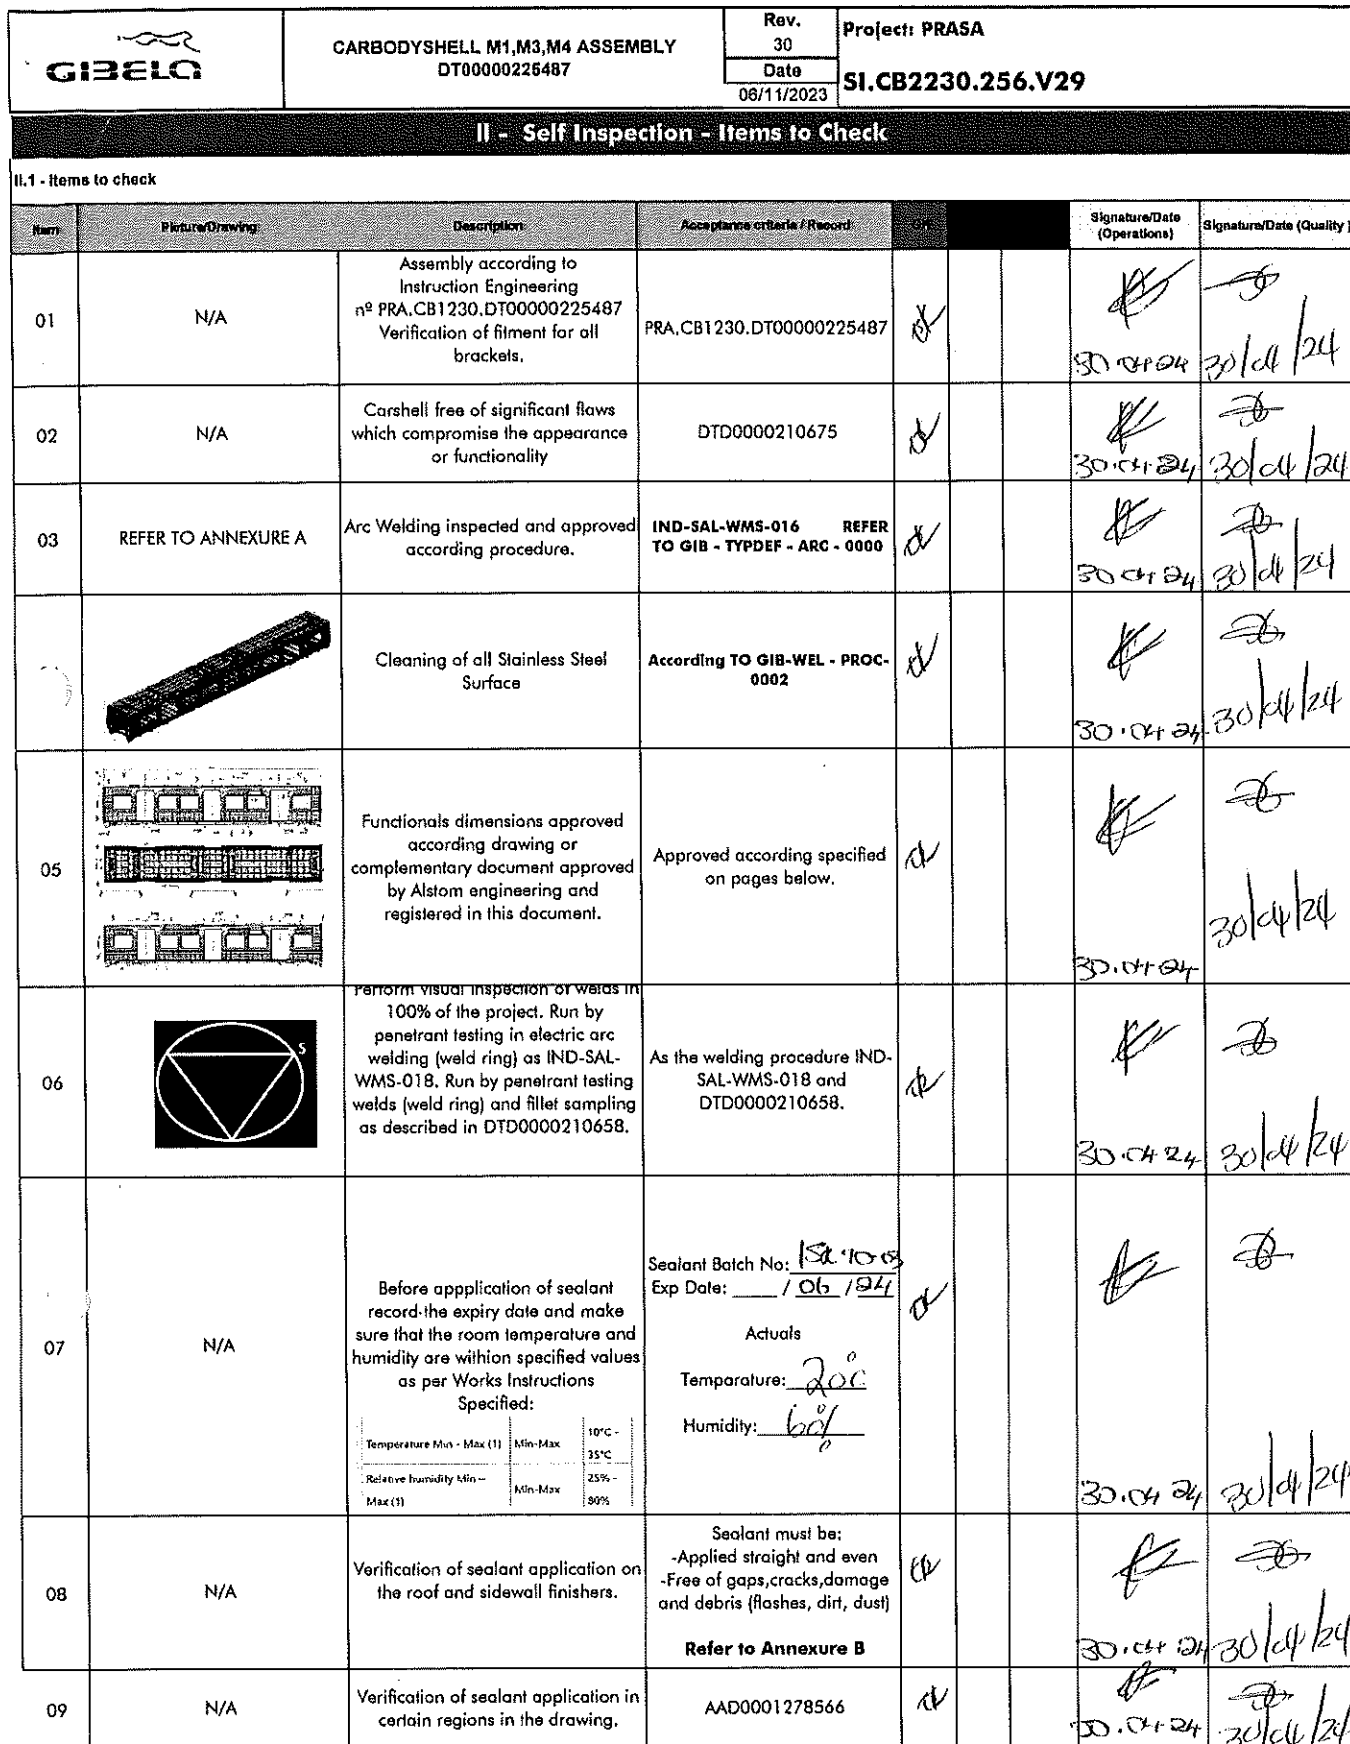 GIBELA
CARBODYSHELL M1,M3,M4 ASSEMBLY
DT00000225487
Rev.
30
Date
06/11/2023
Project: PRASA
SI.CB2230.256.V29
II - Self Inspection - Items to Check
II.1 - Items to check
Item
Picture/Drawing
Description
Acceptance criteria / Record
OK
Signature/Date
(Operations)
Signature/Date (Quality )
01
N/A
Assembly according to
Instruction Engineering
nº PRA.CB1230.DT00000225487
Verification of fitment for all
brackets.
PRA.CB1230.DT00000225487
ok
30.04.24
30/04/24
02
N/A
Carshell free of significant flaws
which compromise the appearance
or functionality
DTD0000210675
ok
30.04.24
30/04/24
03
REFER TO ANNEXURE A
Arc Welding inspected and approved
according procedure.
IND-SAL-WMS-016 REFER
TO GIB - TYPDEF - ARC - 0000
ok
30.04.24
30/04/24
Cleaning of all Stainless Steel
Surface
According TO GIB-WEL - PROC-
0002
ok
30.04.24
30/04/24
05
Functionals dimensions approved
according drawing or
complementary document approved
by Alstom engineering and
registered in this document.
Approved according specified
on pages below.
ok
30.04.24
30/04/24
06
S
Perform visual inspection of welds in
100% of the project. Run by
penetrant testing in electric arc
welding (weld ring) as IND-SAL-
WMS-018. Run by penetrant testing
welds (weld ring) and fillet sampling
as described in DTD0000210658.
As the welding procedure IND-
SAL-WMS-018 and
DTD0000210658.
ok
30.04.24
30/04/24
07
N/A
Before appplication of sealant
record the expiry date and make
sure that the room temperature and
humidity are withion specified values
as per Works Instructions
Specified:
Temperature Min - Max (1) Min-Max 10°C -
35°C
Relative humidity Min –
Max (1) Min-Max 25% -
80%
Sealant Batch No:
Exp Date: ____ / 06 / 24
Actuals
Temparature: 20°C
Humidity: 60%
ok
30.04.24
30/04/24
08
N/A
Verification of sealant application on
the roof and sidewall finishers.
Sealant must be:
-Applied straight and even
-Free of gaps,cracks,damage
and debris (flashes, dirt, dust)
Refer to Annexure B
ok
30.04.24
30/04/24
09
N/A
Verification of sealant application in
certain regions in the drawing.
AAD0001278566
ok
30.04.24
30/04/24